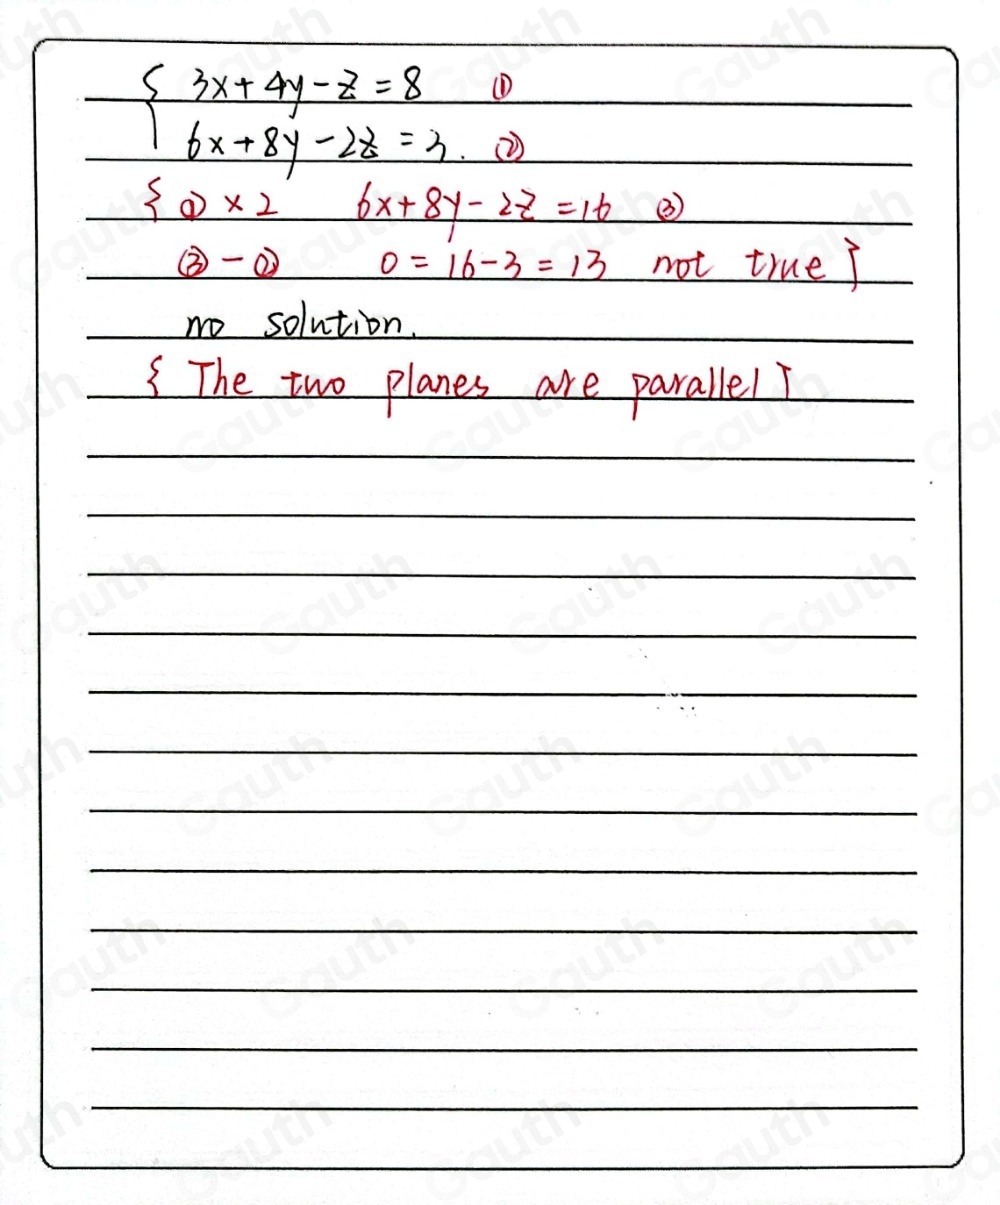 { 3x+4y-z=8 ①
6x+8y-2z=3. ②
{ ①×2 6x+8y-2z=16 ③
③-② 0=16-3=13 not true }
no solution.
{ The two planes are parallel }
Gauth